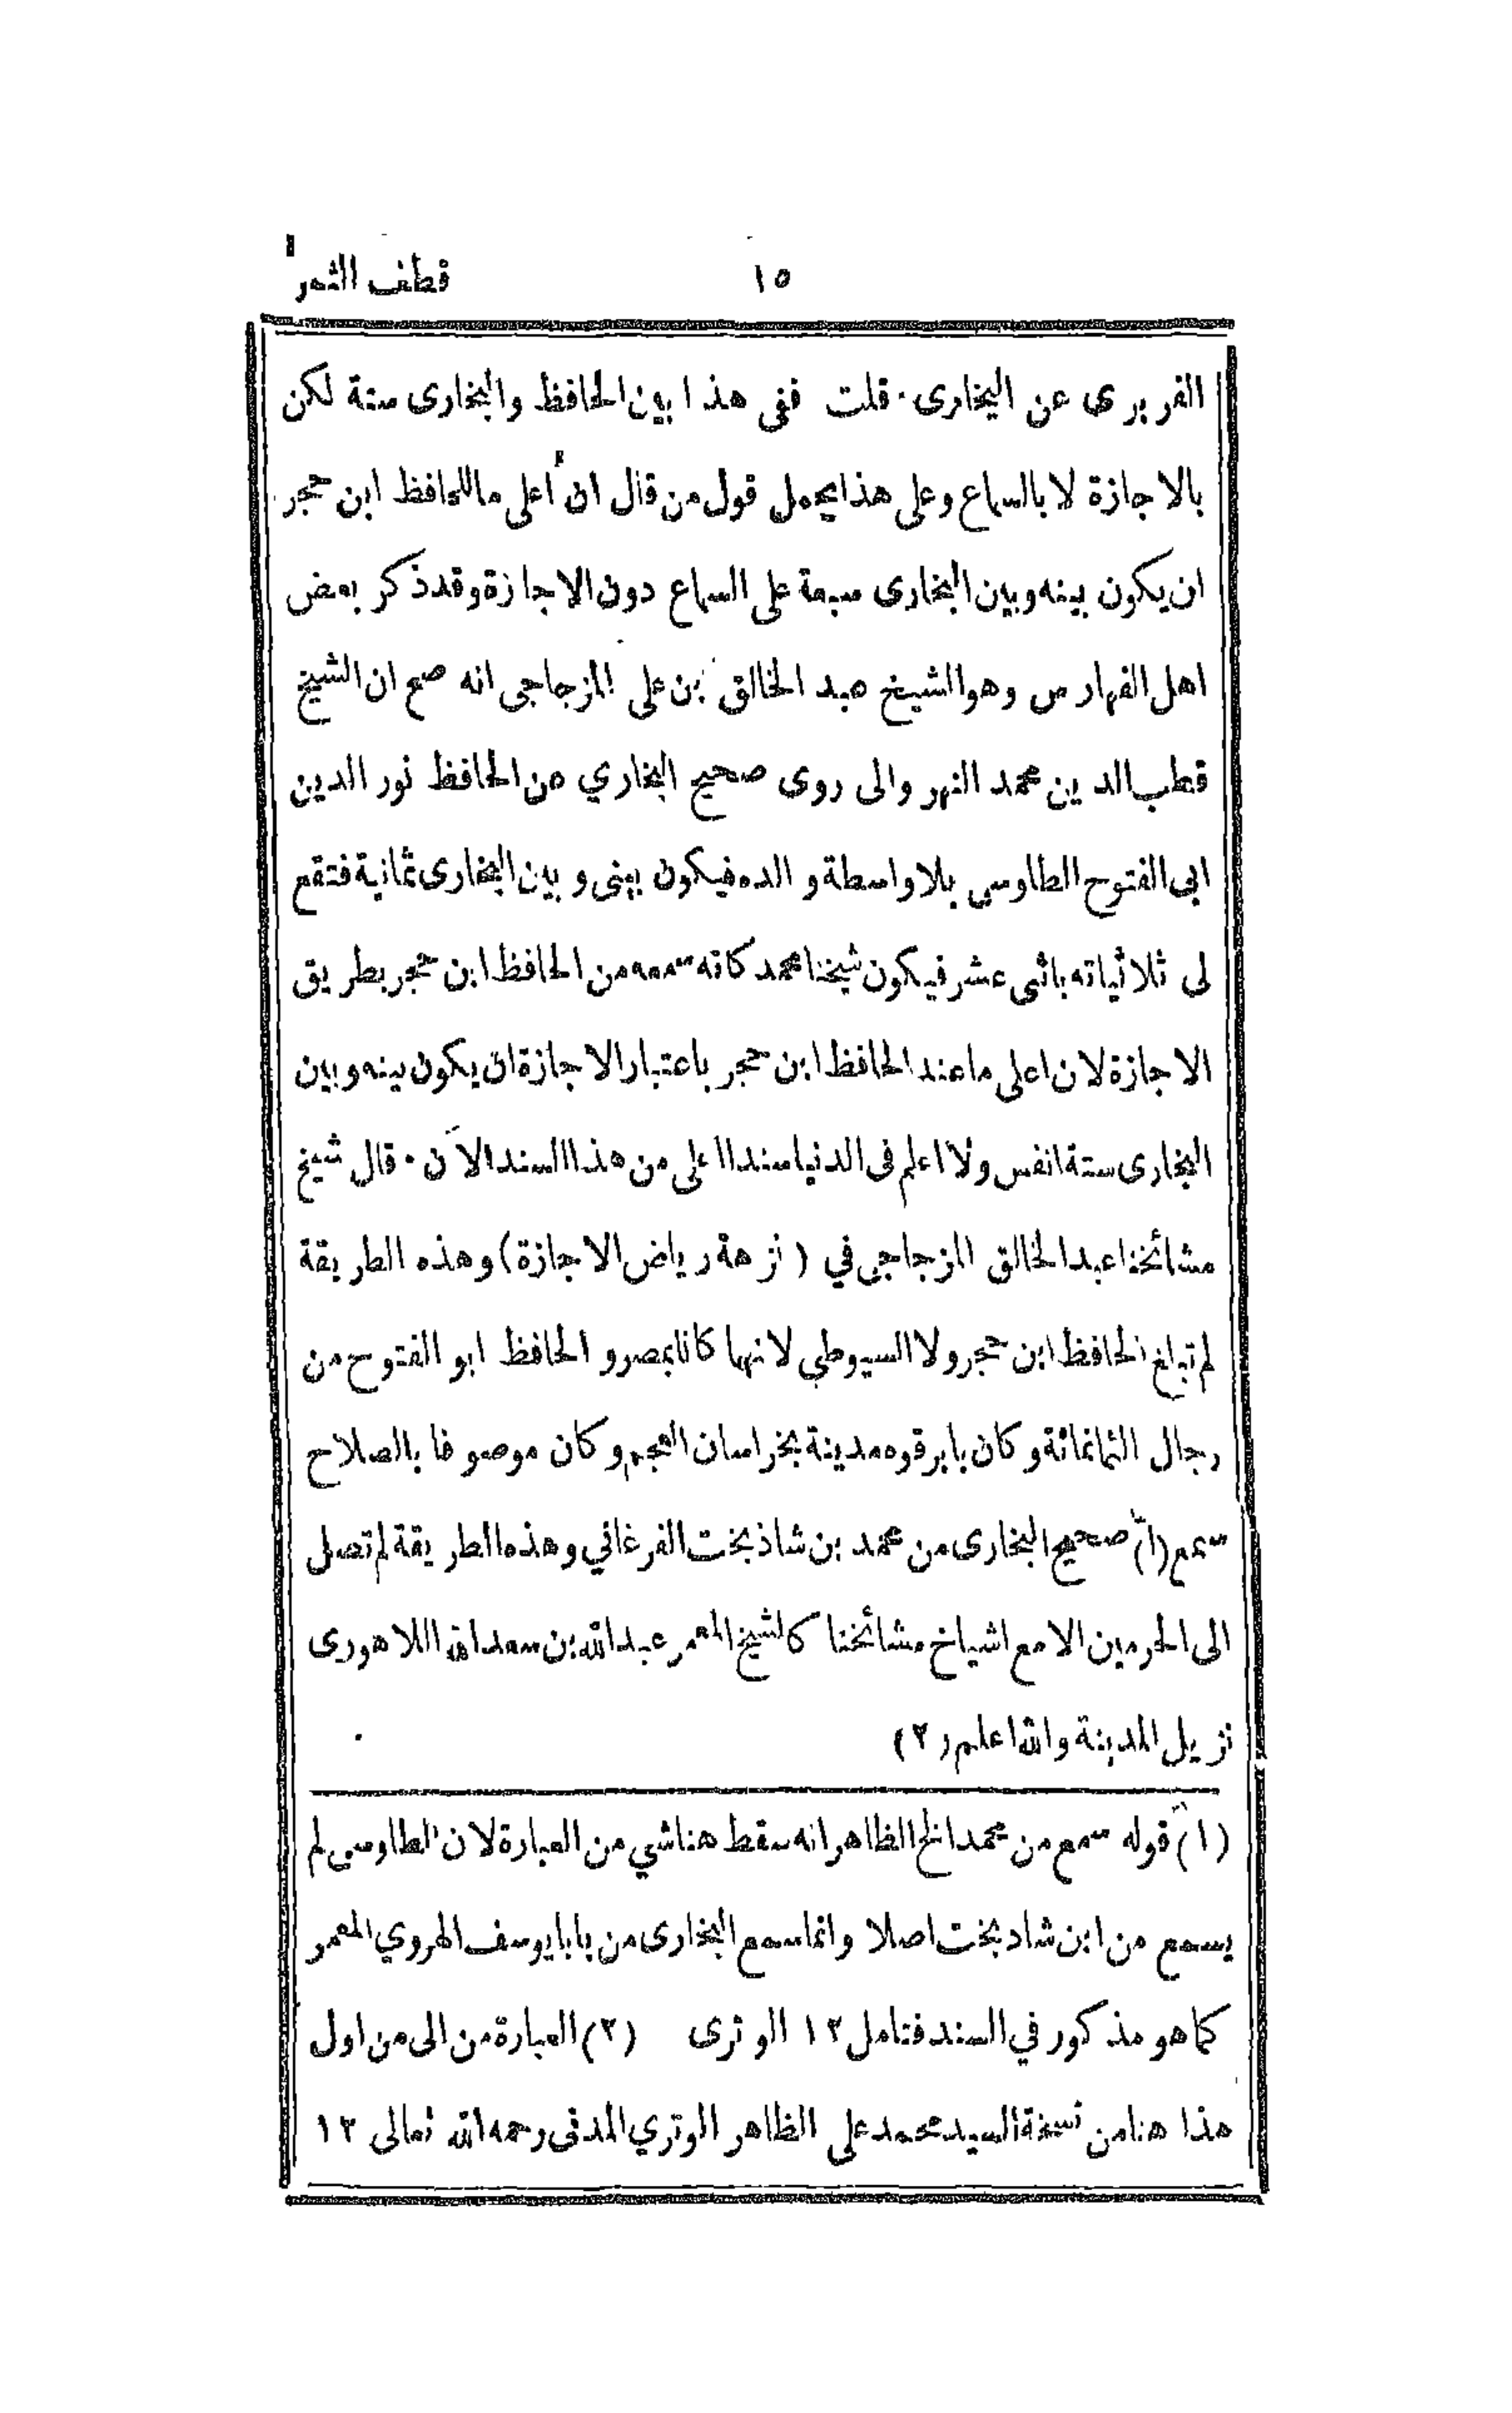 ١٥ قطف الثمر
الفربرى عن البخارى · قلت ففى هذا بين الحافظ والبخارى ستة لكن
بالاجازة لا بالسماع وعلى هذا يحمل قول من قال ان أعلى ما للحافظ ابن حجر
ان يكون بينه وبين البخارى سبعة على السماع دون الاجازة وقد ذكر بعض
اهل الفهارس وهو الشيخ عبد الخالق بن على المزجاجى انه صح ان الشيخ
قطب الدين محمد النهر والى روى صحيح البخاري عن الحافظ نور الدين
ابى الفتوح الطاوسى بلا واسطة والده فيكون بينى وبين البخارى ثمانية فتقع
لى ثلاثياته باثنى عشر فيكون شيخنا محمد كانه سمعه من الحافظ ابن حجر بطريق
الاجازة لان اعلى ما عند الحافظ ابن حجر باعتبار الاجازة ان يكون بينه وبين
البخارى ستة انفس ولا اعلم فى الدنيا سندا اعلى من هذا السند الآن · قال شيخ
مشائخنا عبد الخالق المزجاجى في ( نزهة رياض الاجازة ) وهذه الطريقة
لم تبلغ الحافظ ابن حجر ولا السيوطى لانهما كانا بمصر و الحافظ ابو الفتوح من
رجال الثمانمائة وكان بابرقوه مدينة بخراسان العجم وكان موصوفا بالصلاح
سمع (١) صحيح البخارى من محمد بن شاذ بخت الفرغاني وهذه الطريقة لم تصل
الى الحرمين الا مع اشياخ مشائخنا كالشيخ المعمر عبد الله بن سعد الله اللاهورى
نزيل المدينة والله اعلم (٢)
(١) قوله سمع من محمد الخ الظاهر انه سقط هنا شي من العبارة لان الطاوسى لم
يسمع من ابن شاد بخت اصلا وانما سمع البخارى من بابا يوسف الهروي المعمر
كما هو مذكور في السند فتامل ١٢ الوترى (٢) العبارة من الى من اول
هذا هنا من نسخة السيد محمد على الظاهر الوتري المدنى رحمه الله تعالى ١٢